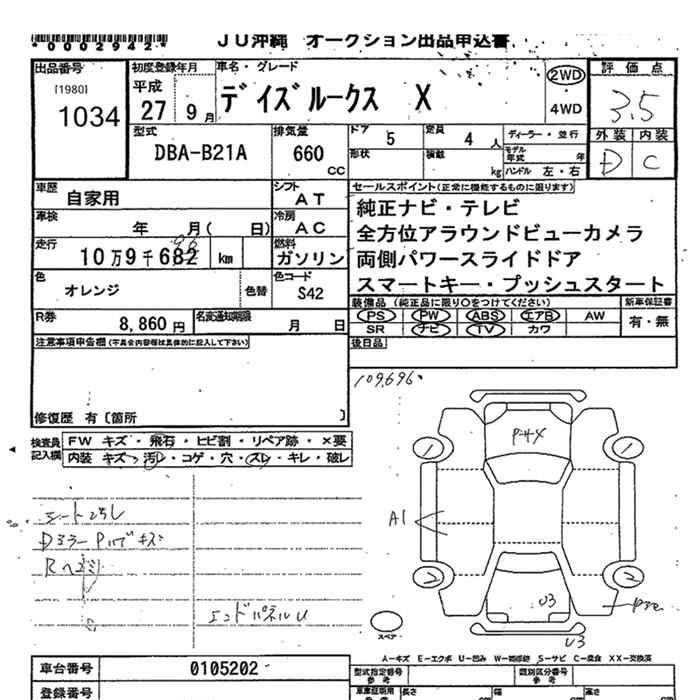 *0002942*
JU沖縄 オークション出品申込書
出品番号
[1980]
1034
初度登録年月
平成
27 9月
車名・グレード
デイズルークス X
2WD
4WD
評価点
3.5
外装 内装
D C
型式
DBA-B21A
排気量
660
CC
ドア 5
定員 4 人
形状
積載 kg
ディーラー・並行
モデル年式 年
ハンドル 左・右
車歴
自家用
シフト
AT
車検
年 月( 日)
冷房
AC
走行
10万9千682 km
96
燃料
ガソリン
色
オレンジ
色替
色コード
S42
R券
8,860円
名変通知期限
月 日
セールスポイント(正常に機能するものに限ります)
純正ナビ・テレビ
全方位アラウンドビューカメラ
両側パワースライドドア
スマートキー・プッシュスタート
装備品 (純正品に限り○をつけてください)
新車保証書
PS PW ABS エアB AW
SR ナビ TV カワ
有・無
後日品
注意事項申告欄(不具合内容等は具体的に記入して下さい)
修復歴 有〔箇所 〕
109,696.
検査員記入欄
FW キズ・飛石・ヒビ割・リペア跡・×要
内装 キズ・汚レ・コゲ・穴・スレ・キレ・破レ
Dミラー
キズ
エンドパネルU
P=4X
1
1
A1
2
2
U3
U3
スペア
A-キズ E-エクボ U-凹み W-補修跡 S-サビ C-腐食 XX-交換済
車台番号
0105202
登録番号
型式指定番号
参考
類別区分番号
参考
車庫証明用
長さ
cm
幅
cm
高さ
cm